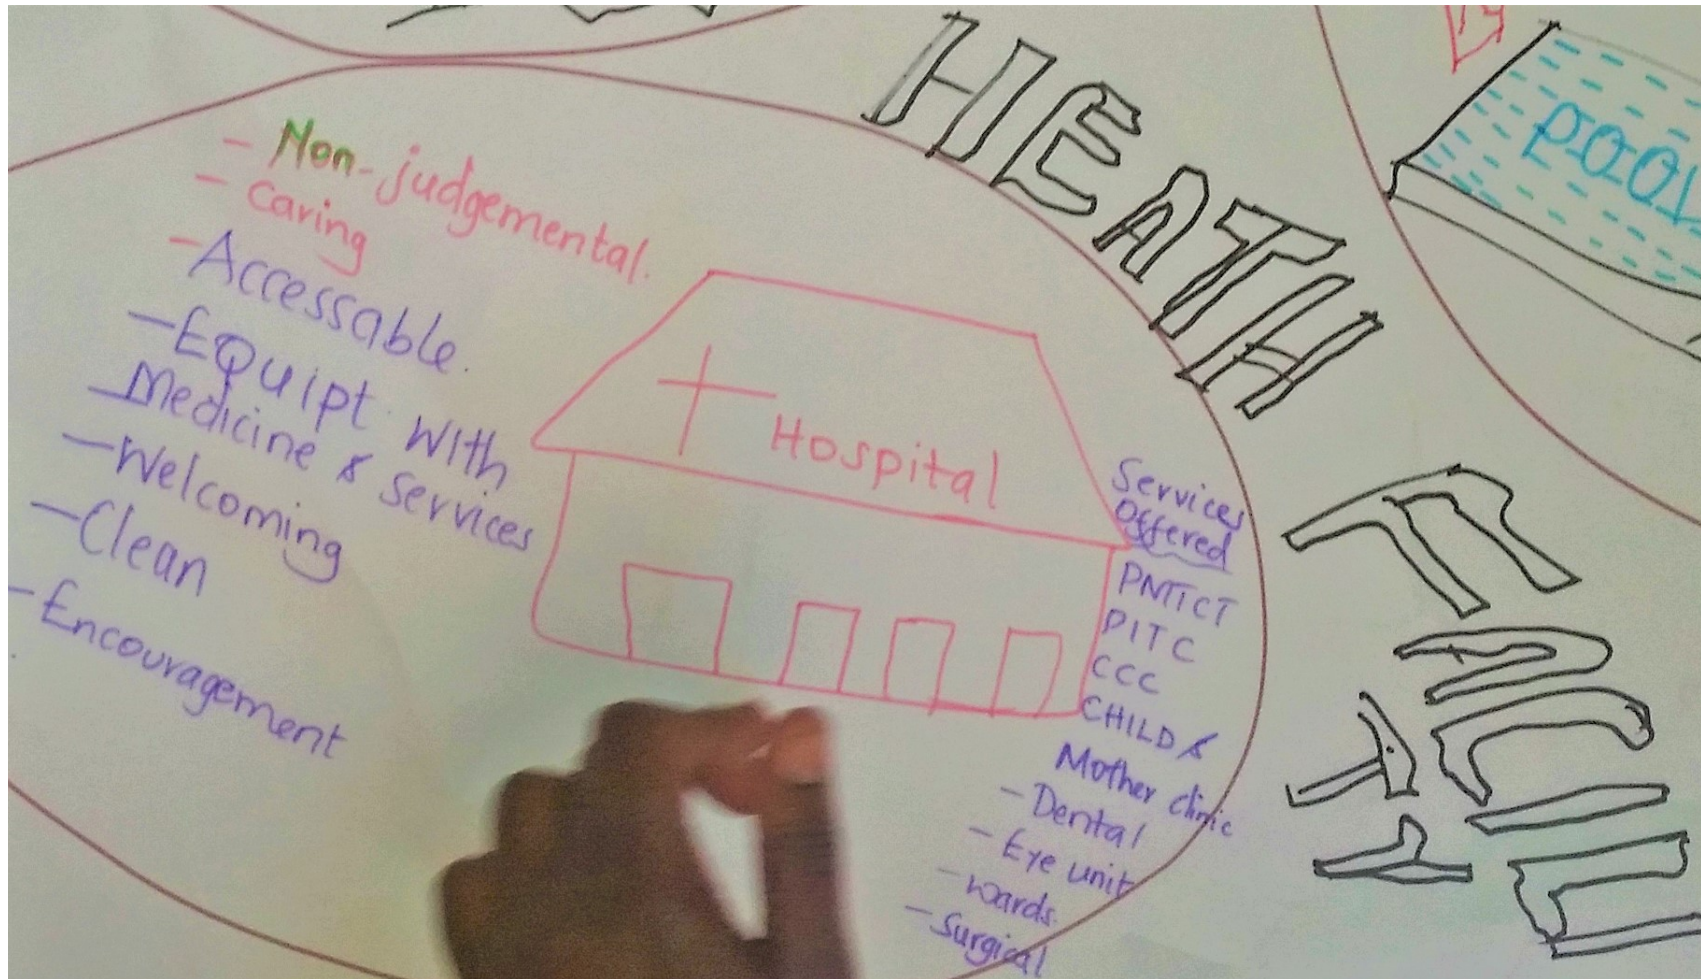 HEATH
POOL
- Non-judgemental.
- Caring
- Accessable.
- EQuipt with
Medicine & services
- Welcoming
- Clean
- Encouragement
Hospital
Services
Offered
PMTCT
PITC
CCC
CHILD &
Mother clinic
- Dental
- Eye unit
- wards
- Surgical